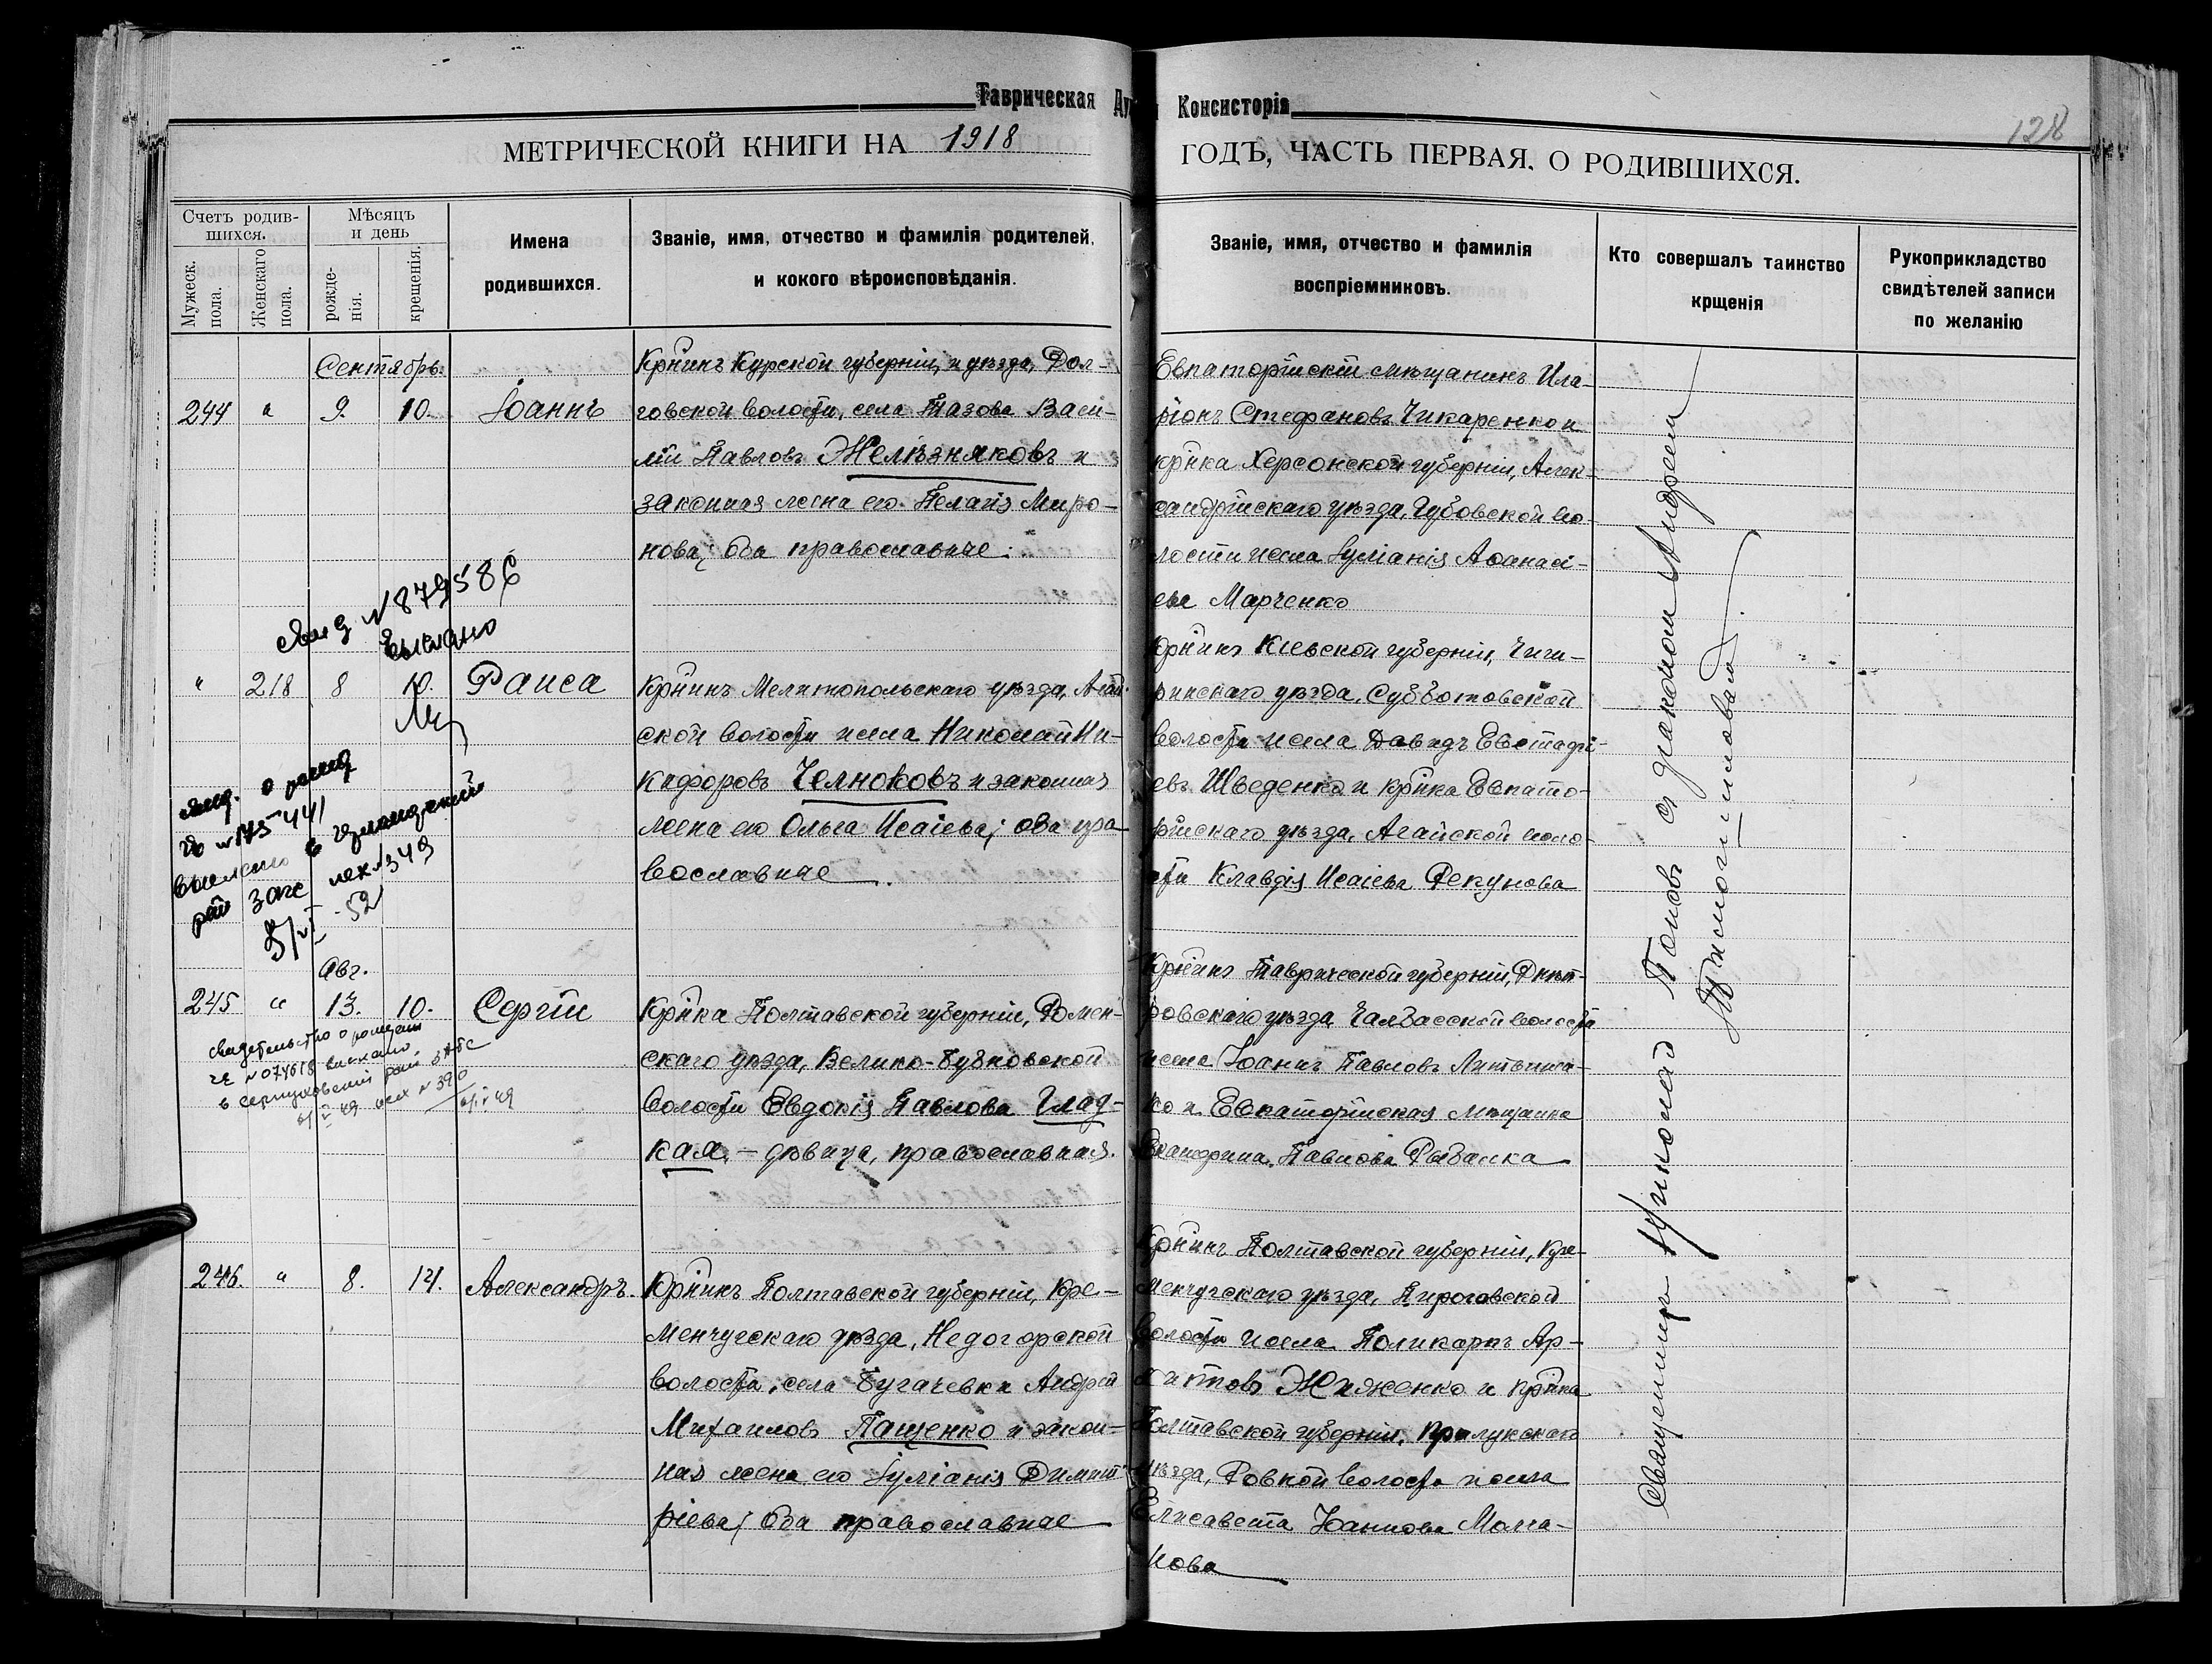 Таврическая Ду Консисторія
128
МЕТРИЧЕСКОЙ КНИГИ НА 1918 ГОДЪ, ЧАСТЬ ПЕРВАЯ, О РОДИВШИХСЯ.
Счетъ родив-
шихся.
Мужеск.
пола.
Женскаго
пола.
Мѣсяцъ
и день
рожде-
нія.
крещенія.
Имена
родившихся.
Званіе, имя, отчество и фамилія родителей,
и кокого вѣроисповѣданія.
Званіе, имя, отчество и фамилія
воспріемниковъ.
Кто совершалъ таинство
крщенія
Рукоприкладство
свидѣтелей записи
по желанію
Сентябрь
244 " 9. 10. Іоаннъ
Крнинъ Курской губерніи, и уѣзда, Дол-
говской волости, села Тазова Васи-
лій Павловъ Желѣзняковъ и
законная жена его Пелагія Миро-
нова; оба православные.
Евпаторійскій мѣщанинъ Ила-
ріонъ Стефановъ Чикаренко и
крнка Херсонской губерніи, Алек-
сандрійскаго уѣзда, Губовской во-
лости и села Іуліанія Афанасі-
ева Марченко
№ 879586
выслано
" 218 8 10. Раиса
Крнинъ Мелитопольскаго уѣзда,
ской волости и села Николай Ни-
кифоровъ Челноковъ и законная
жена его Ольга Исаіева; оба пра-
вославные
Крнинъ Кіевской губерніи, Чиги-
ринскаго уѣзда, Субботовской
волости и села Давидъ Евстафі-
евъ Шведенко и крнка Евпато-
рійскаго уѣзда, Агайской воло-
сти Клавдія Исаіева Рекунова
№ 175441
выслано в
рай загс исх №349
52
Авг.
245 " 13. 10. Сергій
Крнка Полтавской губерніи, Ромен-
скаго уѣзда, Велико-Бубновской
волости Евдокія Павлова Глад-
кая, — дѣвица, православная.
Крнинъ Таврической губерніи, Днѣп-
ровскаго уѣзда Чалбасской волости
и села Іоаннъ Павловъ Литвинен-
ко и Евпаторійская мѣщанка
Екатерина Павлова Рыбалка
свидетельство о рождении
№ 074618 выслано
в серпуховский рай ЗАГС
49 исх № 390
49
246. " 8. 14. Александръ
Крнинъ Полтавской губерніи, Кре-
менчугскаго уѣзда, Недогорской
волости, села Бугачевки Андрей
Михаиловъ Пащенко и закон-
ная жена его Іуліанія Димит-
ріева; оба православные
Крнинъ Полтавской губерніи, Кре-
менчугскаго уѣзда, Пироговской
волости и села Поликарпъ Ар-
хиповъ Жиженко и крнка
Полтавской губерніи, Прилукскаго
уѣзда, Ровной волости и села
Елисавета Іоаннова Мома-
кова
Священникъ Николай Поповъ съ діакономъ Андреемъ
Тимогишовымъ.